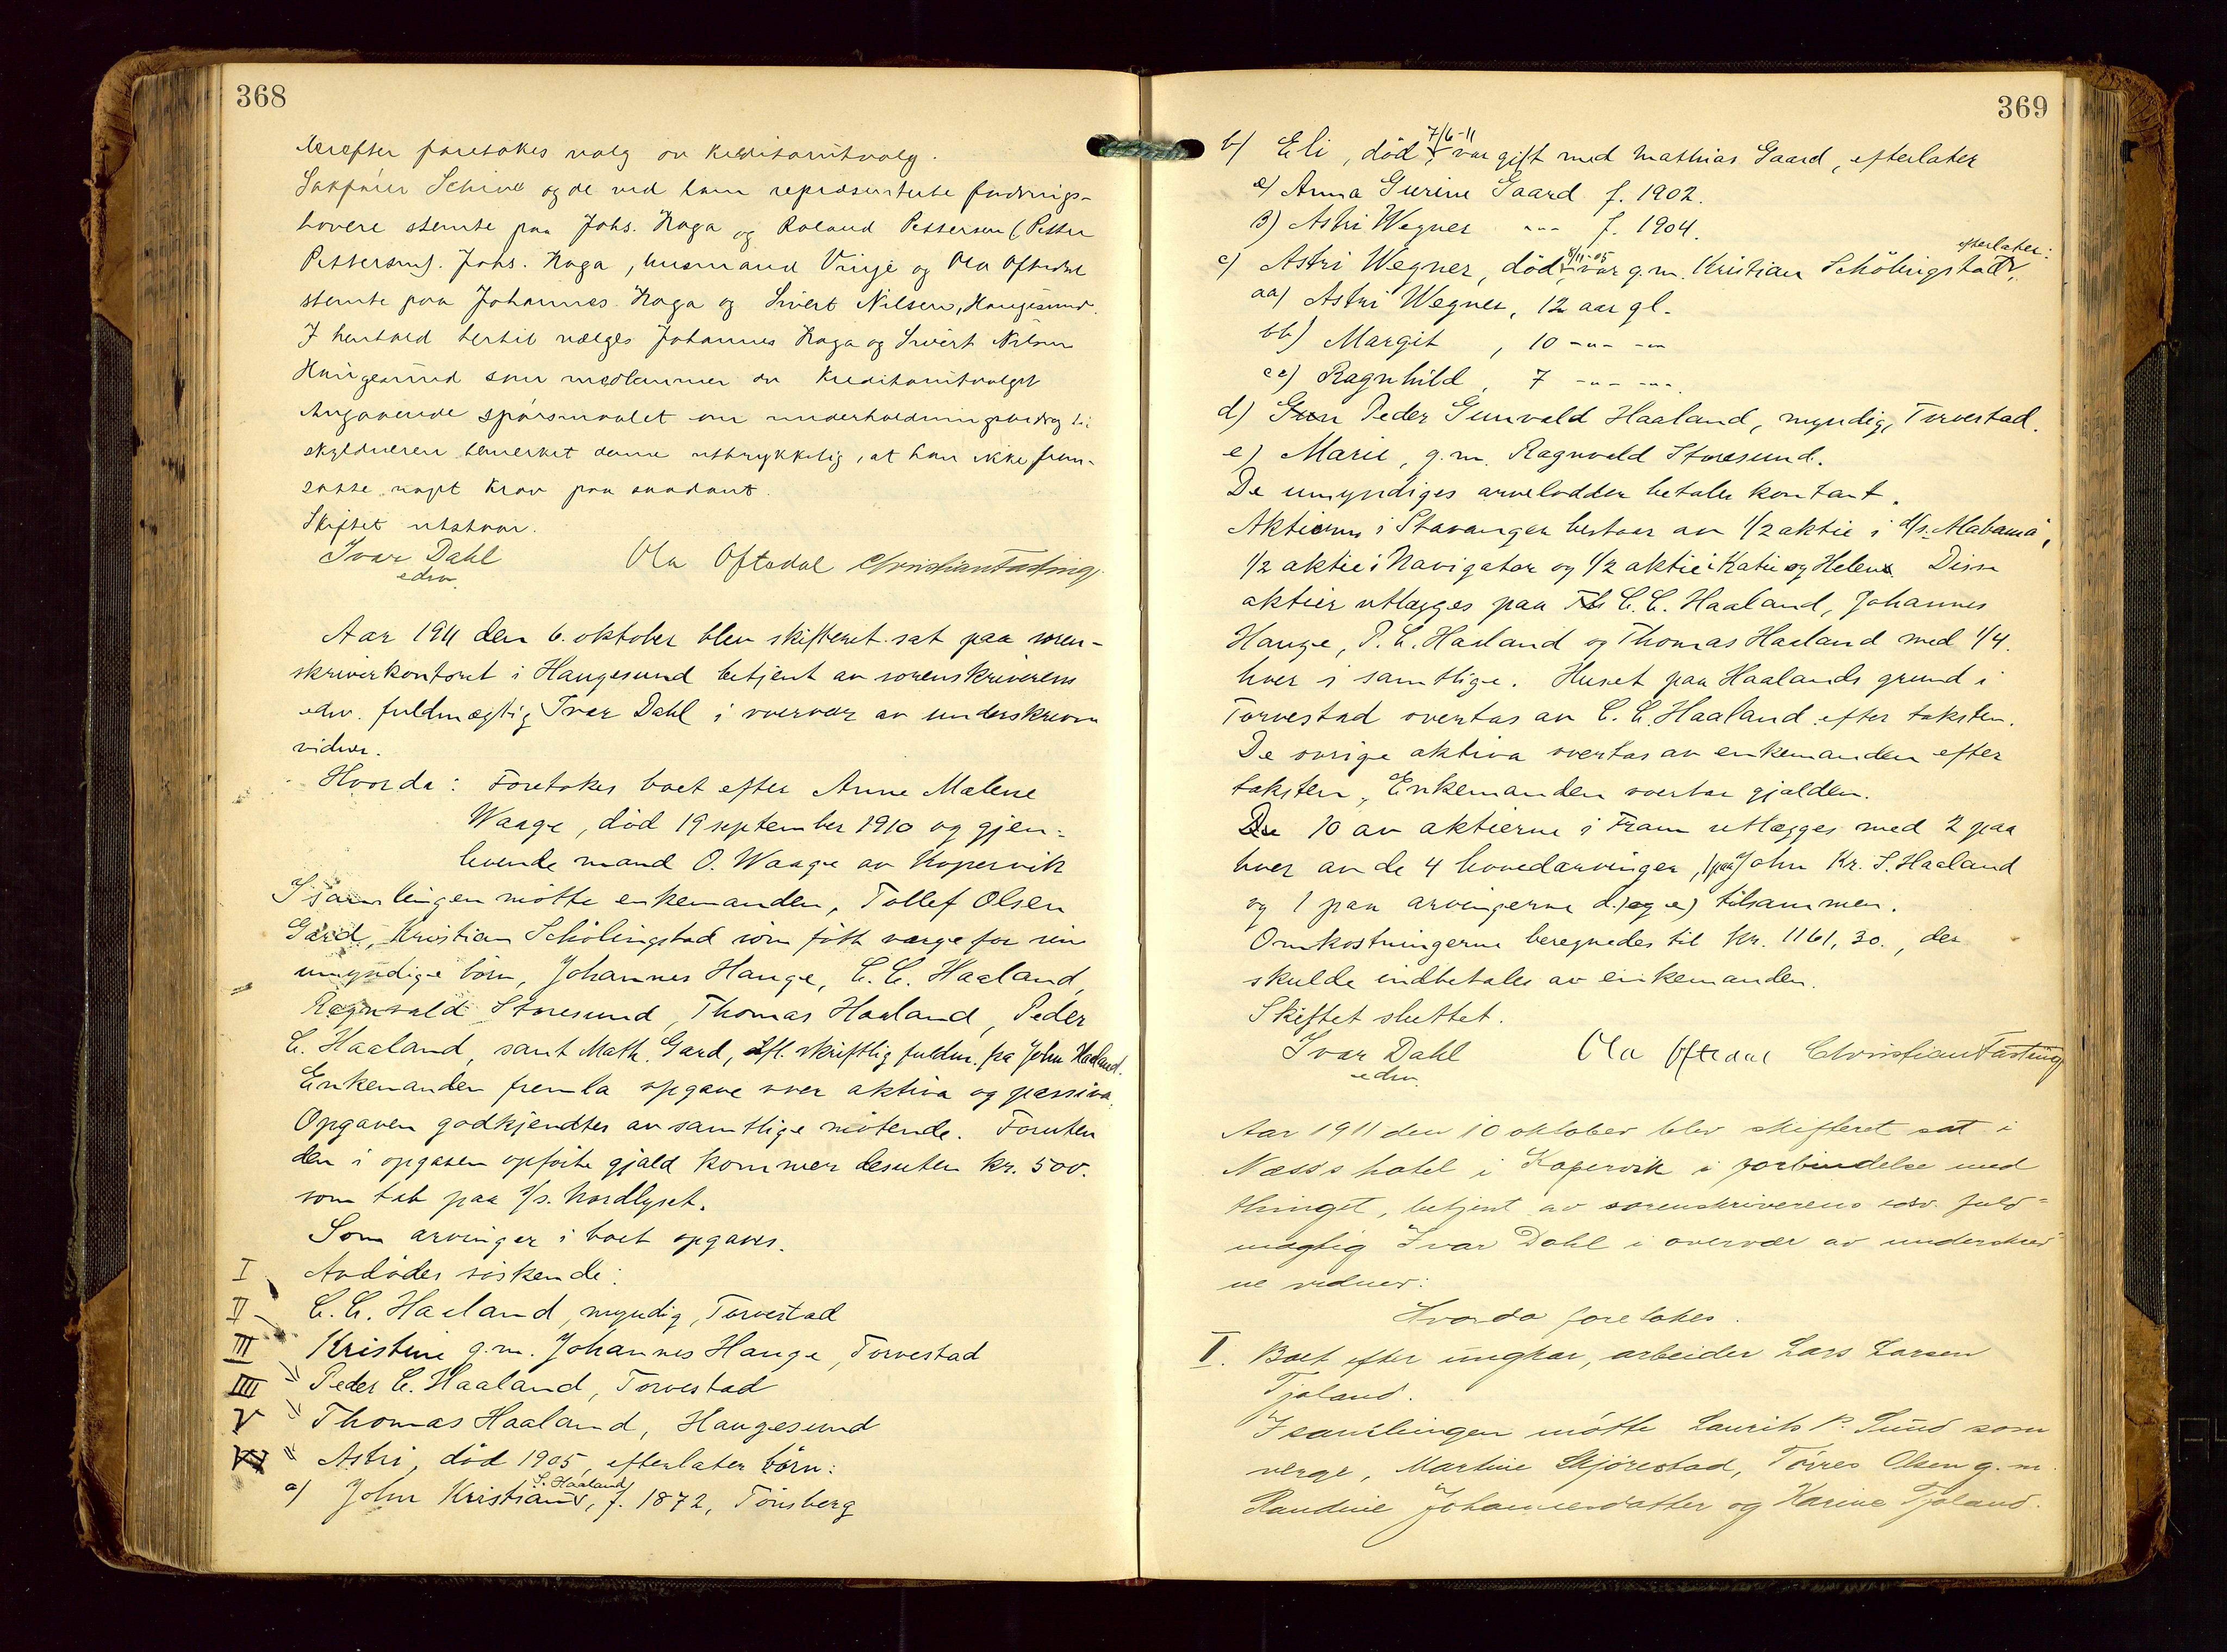 368
Derefter foretokes valg av kreditorutvalg.
Sakfører Schive og de ved ham repræsenterte fordrings-
havere stemte paa Johs. Haga og Roland Pettersen (Petter
Pettersen). Johs. Haga, Vinje og Ola Oftedal
stemte paa Johannes Haga og Sivert Nilsen, Haugesund.
I henhold hertil vælges Johannes Haga og Sivert Nilsen
Haugesund som medlemmer av kreditorutvalget
Angaaende spørsmaalet om underholdningsbidrag til
skyldneren bemerket denne uttrykkelig, at han ikke frem-
satte noget krav paa saadant.
Skiftet utstaar.
Ivar Dahl
edsv.
Ola Oftedal Christian Fasting
Aar 1911 den 6. oktober blev skifteret sat paa soren-
skriverkontoret i Haugesund betjent av sorenskriverens
edsv. fuldmægtig Ivar Dahl i overvær av underskrevne
vidner.
Hvorda: Foretokes boet efter Anne Malene
Waage, död 19 september 1910 og gjen-
levende mand O. Waage av Kopervik
I samlingen mötte enkemanden, Tollef Olsen
Gard, Kristian Schölingstad som født værge for sine
umyndige börn, Johannes Hauge, C. C. Haaland,
Ragnvald Storesund, Thomas Haaland, Peder
C. Haaland, samt Math. Gard, ifl. skriftlig fuldm. fra John Haaland.
Enkemanden fremla opgave over aktiva og passiva.
Opgaven godkjendtes av samtlige mötende. Foruten
den i opgaven opförte gjæld kommer desuten kr. 500.
som tab paa s/s. Nordlyset.
Som arvinger i boet opgaves.
I Avdødes söskende:
II C. C. Haaland, myndig, Torvestad
III Kristine g.m. Johannes Hauge, Torvestad
IIII " Peder C. Haaland, Torvestad
V " Thomas Haaland, Haugesund
VI " Astri, död 1905, efterlater börn:
a) John Kristian S. Haaland, f. 1872, Tönsberg
369
b) Eli, död 7/6-11, var gift med Mathias Gaard, efterlater
α) Anna Gurine Gaard f. 1902.
β) Astri Wegner -"- f. 1904.
c) Astri Wegner, död 8/11-05, var g.m. Kristian Schölingstad, efterlater:
aa) Astri Wegner, 12 aar gl.
bb) Margit, 10 -"- -"-
cc) Ragnhild, 7 -"- -"-.
d) Gun Peder Gunvald Haaland, myndig, Torvestad.
e) Marie, g.m. Ragnvald Storesund.
De umyndiges arvelodder betales kontant.
Aktierne i Stavanger bestaar av 1/2 aktie i d/s. Alabama,
1/2 aktie i Navigator og 1/2 aktie i Katie og Helene. Disse
aktier utlægges paa C. C. Haaland, Johannes
Hauge, P. C. Haaland og Thomas Haaland med 1/4.
hver i samtlige. Huset paa Haalands grund i
Torvestad overtas av C. C. Haaland efter taksten.
De övrige aktiva overtas av enkemanden efter
taksten, Enkemanden overtar gjælden.
De 10 av aktierne i Fram utlægges med 2 paa
hver av de 4 hovedarvinger, 1 paa John Kr. S. Haaland
og 1 paa arvingerne d.) og e) tilsammen.
Omkostningerne beregnedes til kr. 1161,30., der
skulde indbetales av enkemanden.
Skiftet sluttet.
Ivar Dahl
edsv.
Ola Oftedal Christian Fasting
Aar 1911 den 10 oktober blev skifteret sat i
Næss's hotel i Kopervik i forbindelse med
thinget, betjent av sorenskriverens edsv. fuld-
mægtig Ivar Dahl i overvær av underskrev
ne vidner:
Hvorda foretokes.
I. Boet efter ungkar, arbeider Lars Larsen
Tjøland.
I samlingen mötte Laurits P. Sund som
verge, Martine Skjörestad, Törres Olsen g. m.
Randine Johannesdatter og Karine Tjøland.